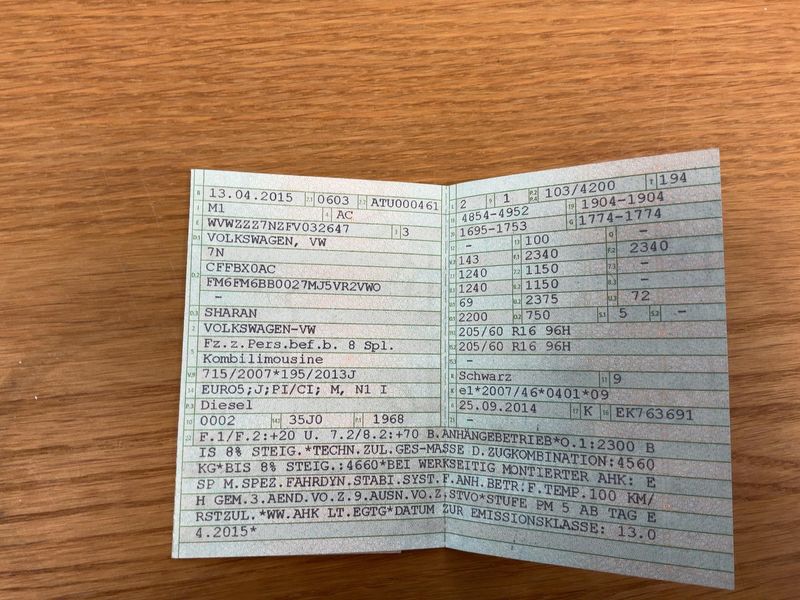 B 13.04.2015 2.1 0603 2.2 ATU000461
J M1 4 AC
E WVWZZZ7NZFV032647 3 3
D.1 VOLKSWAGEN, VW
7N
D.2 CFFBX0AC
FM6FM6BB0027MJ5VR2VWO
–
D.3 SHARAN
2 VOLKSWAGEN-VW
5 Fz.z.Pers.bef.b. 8 Spl.
Kombilimousine
V.9 715/2007*195/2013J
14 EURO5;J;PI/CI; M, N1 I
P.3 Diesel
10 0002 14.1 35J0 P.1 1968
L 2 9 1 P.2 P.4 103/4200 T 194
18 4854-4952 19 1904-1904
20 1695-1753 G 1774-1774
12 – 13 100 Q –
V.7 143 F.1 2340 F.2 2340
7.1 1240 7.2 1150 7.3 –
8.1 1240 8.2 1150 8.3 –
U.1 69 U.2 2375 U.3 72
O.1 2200 O.2 750 S.1 5 S.2 –
15.1 205/60 R16 96H
15.2 205/60 R16 96H
15.3 –
R Schwarz 11 9
K e1*2007/46*0401*09
6 25.09.2014 17 K 16 EK763691
21 –
22 F.1/F.2:+20 U. 7.2/8.2:+70 B.ANHÄNGEBETRIEB*O.1:2300 B
IS 8% STEIG.*TECHN.ZUL.GES-MASSE D.ZUGKOMBINATION:4560
KG*BIS 8% STEIG.:4660*BEI WERKSEITIG MONTIERTER AHK: E
SP M.SPEZ.FAHRDYN.STABI.SYST.F.ANH.BETR.F.TEMP.100 KM/
H GEM.3.AEND.VO.Z.9.AUSN.VO.Z.STVO*STUFE PM 5 AB TAG E
RSTZUL.*WW.AHK LT.EGTG*DATUM ZUR EMISSIONSKLASSE: 13.0
4.2015*